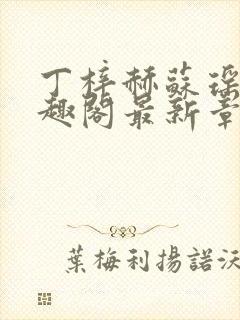 丁梓赫蘇瑤
趣閣最新章
葉梅利揚諾沃